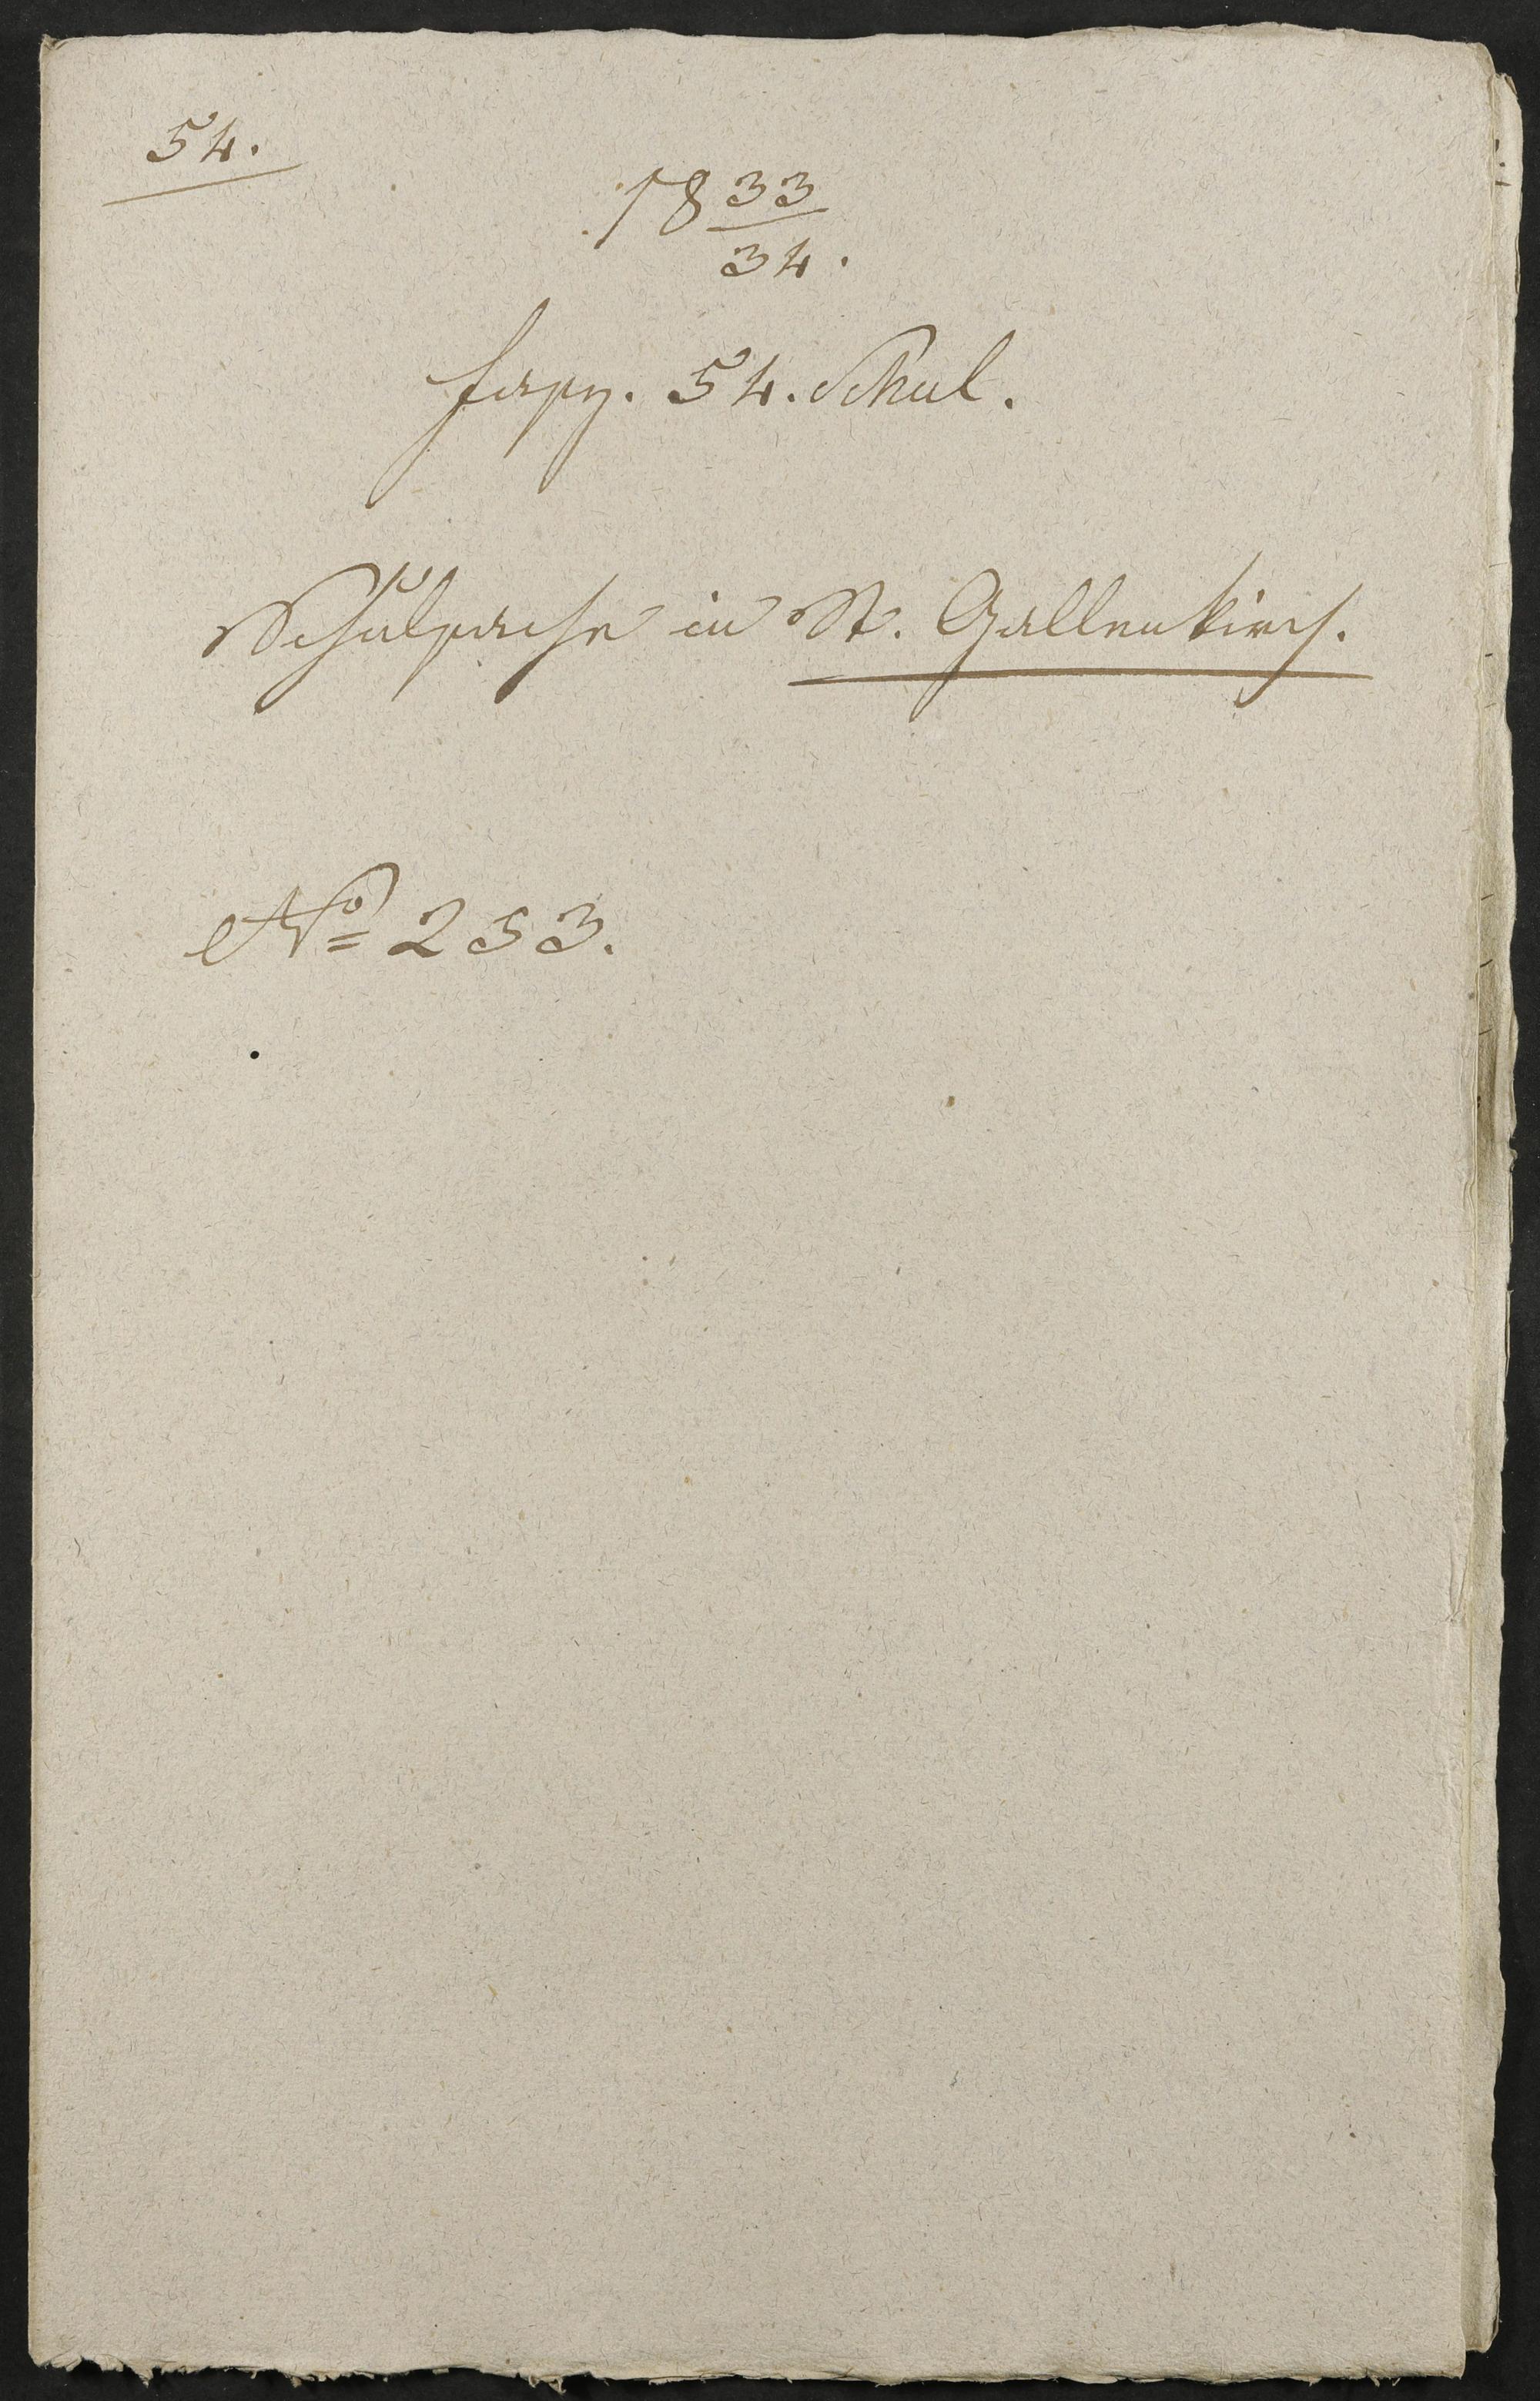 54.
18 33
34.
Fasz. 54. Schul.
Schulsache in St. Gallenkirch.
No 253.